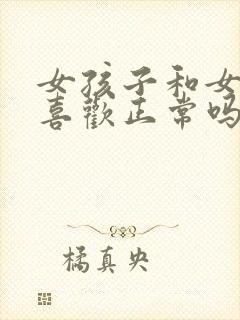 女孩子和女
喜歡正常吗
橘真央